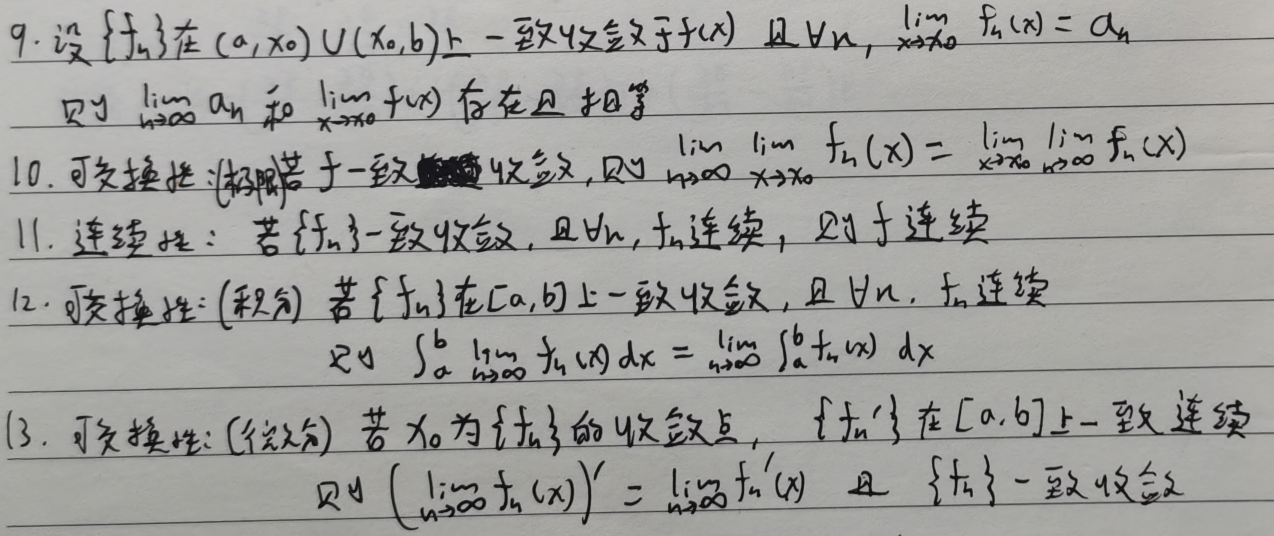 9. 设{fₙ}在(a,x₀)∪(x₀,b)上一致收敛于f(x) 且∀n, lim_{x→x₀} fₙ(x) = aₙ
则 lim_{n→∞} aₙ 和 lim_{x→x₀} f(x) 存在且相等
10. 可交换性:(极限)若f一致收敛,则 lim_{n→∞} lim_{x→x₀} fₙ(x) = lim_{x→x₀} lim_{n→∞} fₙ(x)
11. 连续性: 若{fₙ}一致收敛,且∀n, fₙ连续, 则f连续
12. 可交换性:(积分) 若{fₙ}在[a,b]上一致收敛,且∀n. fₙ连续
则 ∫ₐᵇ lim_{n→∞} fₙ(x) dx = lim_{n→∞} ∫ₐᵇ fₙ(x) dx
13. 可交换性:(微分) 若x₀为{fₙ}的收敛点, {fₙ'}在[a,b]上一致连续
则 (lim_{n→∞} fₙ(x))' = lim_{n→∞} fₙ'(x) 且 {fₙ}一致收敛